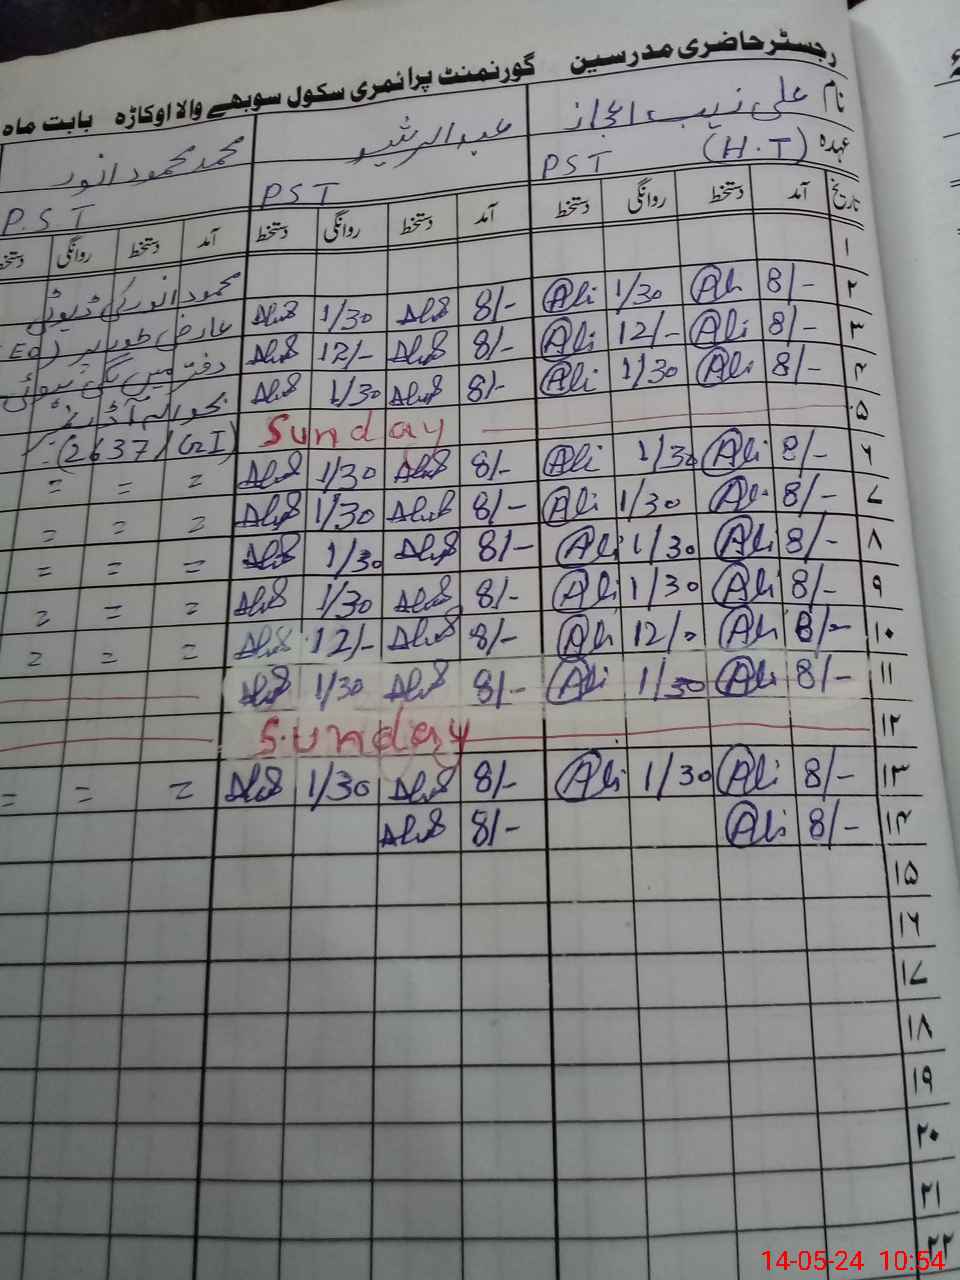 رجسٹر حاضری مدرسین گورنمنٹ پرائمری سکول سوبھے والا اوکاڑہ بابت ماہ
نام علی زیب اعجاز عبدالرشید محمد محمود انور
عہدہ PST (H.T) PST P.S.T
تاریخ آمد دستخط روانگی دستخط آمد دستخط روانگی دستخط آمد دستخط روانگی دستخط
۱
۲ 8/- Ali 1/30 Ali 8/- 1/30 محمود انور کی ڈیوٹی
۳ 8/- Ali 12/- Ali 8/- 12/- عارضی طور پر
۴ 8/- Ali 1/30 Ali 8/- 1/30 دفتر میں لگی ہوئی
۵ Sunday بحوالہ آرڈر نمبر
(2637/GI)
۶ 8/- Ali 1/30 Ali 8/- 1/30 = = =
۷ 8/- Ali 1/30 Ali 8/- 1/30 = = =
۸ 8/- Ali 1/30 Ali 8/- 1/30 = = =
۹ 8/- Ali 1/30 Ali 8/- 1/30 = = =
۱۰ 8/- Ali 12/- Ali 8/- 12/- = = =
۱۱ 8/- Ali 1/30 Ali 8/- 1/30
۱۲ Sunday
۱۳ 8/- Ali 1/30 Ali 8/- 1/30 = = =
۱۴ 8/- Ali 8/-
۱۵
۱۶
۱۷
۱۸
۱۹
۲۰
۲۱
۲۲
14-05-24 10:54